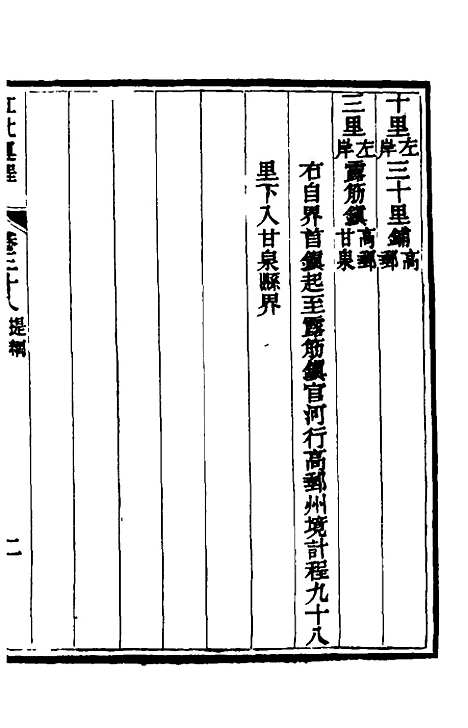 十里左岸三十里鋪高郵
三里左岸露筋鎮高郵甘泉
右自界首鎮起至露筋鎮官河行高郵州境計程九十八
里下入甘泉縣界
卷三十八 提綱 二